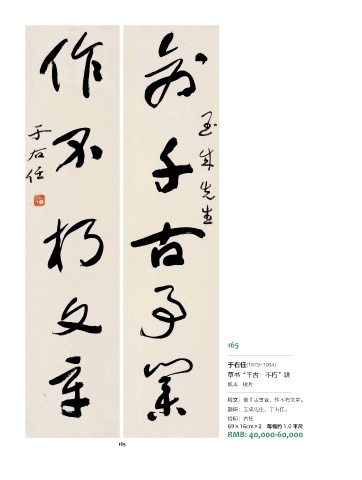 創千古事業
玉成先生
作不朽文章
于右任
165
于右任(1879-1964)
草书“千古·不朽”联
纸本 镜片
释文：创千古事业，作不朽文章。
款识：玉成先生，于右任。
钤印：右任
69×16cm×2 每幅约1.0平尺
RMB: 40,000-60,000
165